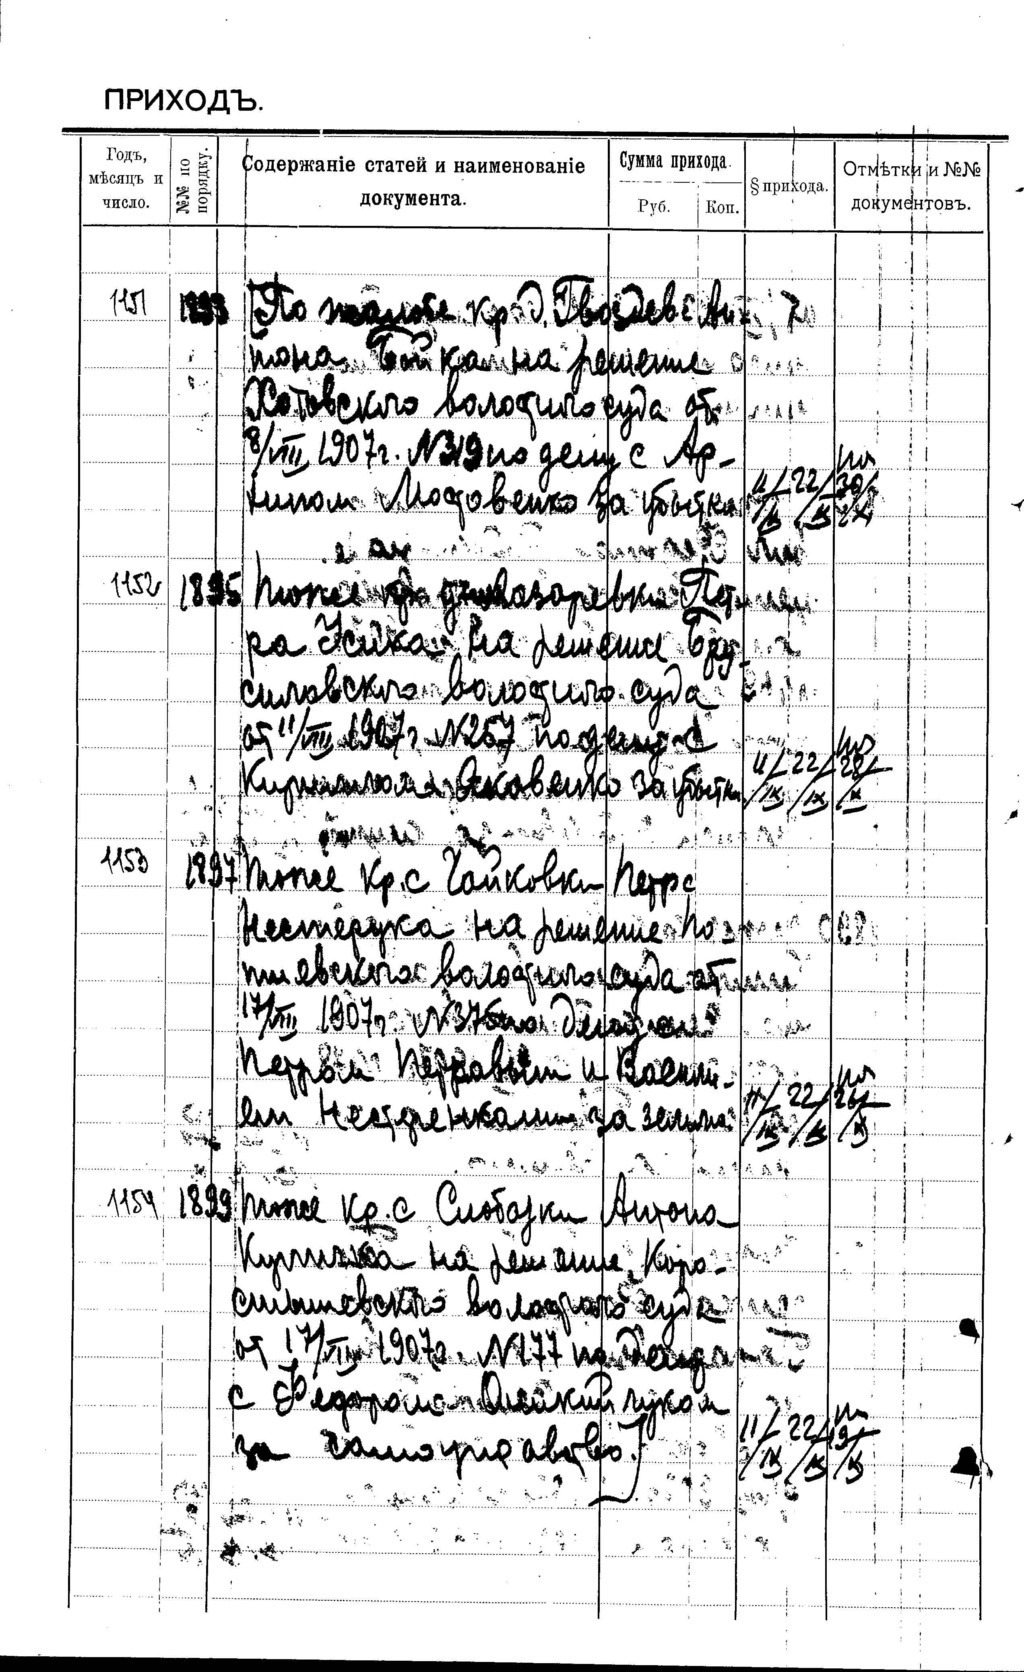 ПРИХОДЪ.
Годъ, мѣсяцъ и число.
№№ по порядку.
Содержаніе статей и наименованіе документа.
Сумма прихода.
Руб. Коп.
§ прихода.
Отмѣтки и №№ документовъ.
1151 1893 По жалобе кр. д. Гвоздева Ан-
тона на решение
волостного суда от
8/VIII 1907 г. № 319 по делу с Ар-
хипом за убытки 11/IX 22/IX
1152 1895 тоже Лазаревки Пет-
ра Усика на решение Бру-
силовского волостного суда
от 11/VIII 1907 г. № 257 по делу с
Яковенко за убытки 11/IX 22/IX 28/X
1153 1897 тоже кр. с. Чайковки Петра
Нестерука на решение По-
тиевского волостного суда от
17/VIII 1907 г. № 375 по делу
Петром Петровым и Васили-
ем Нестеренками за землю 11/IX 22/IX 26/X
1154 1899 тоже кр. с Слободки Антона
на решение Коро-
стышевского волостного суда
от 17/VII 1907 г. № 177 по делу
с Федором
за самоуправство. 11/IX 22/IX